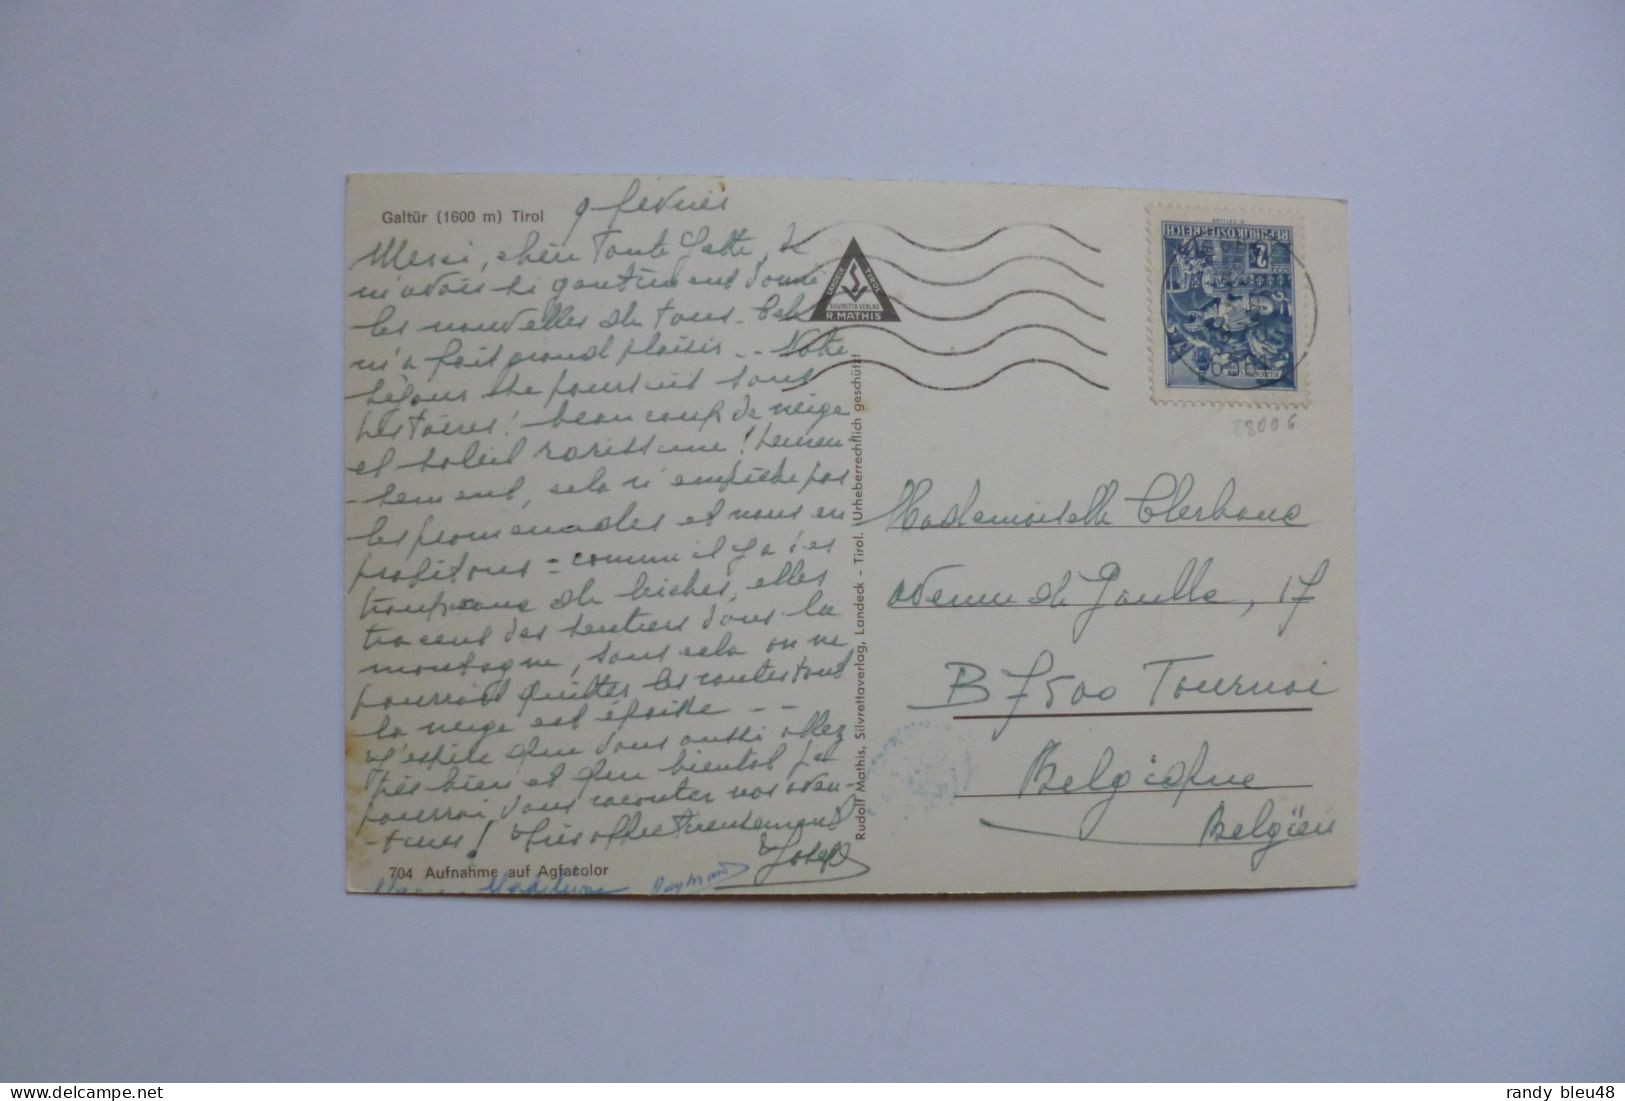 Galtür (1600 m) Tirol
9 février
Merci, chère Tante Yette, de
m'avoir si gentiment donné
les nouvelles de tous. Cela
m'a fait grand plaisir -- Notre
séjour se poursuit sans
histoires! beaucoup de neige
et soleil rarissime! Heureu
-sement, cela n'empêche pas
les promenades et nous en
profitons = comme il y a des
troupeaux de biches, elles
tracent des sentiers dans la
montagne, sans cela on ne
pourrait quitter les routes tant
la neige est épaisse --
J'espère que vous aussi allez
très bien et que bientôt je
pourrai vous raconter nos aven-
tures! Très affectueusement
Joseph
704 Aufnahme auf Agfacolor
Madeleine Raymond
Rudolf Mathis, Silvrettaverlag, Landeck - Tirol. Urheberrechtlich geschützt
LANDECK TIROL
SILVRETTA VERLAG
R. MATHIS
REPUBLIK ÖSTERREICH
2
28006
Mademoiselle Clerbaux
avenue de Gaulle, 17
B 7500 Tournai
Belgique
Belgien
randy bleu48